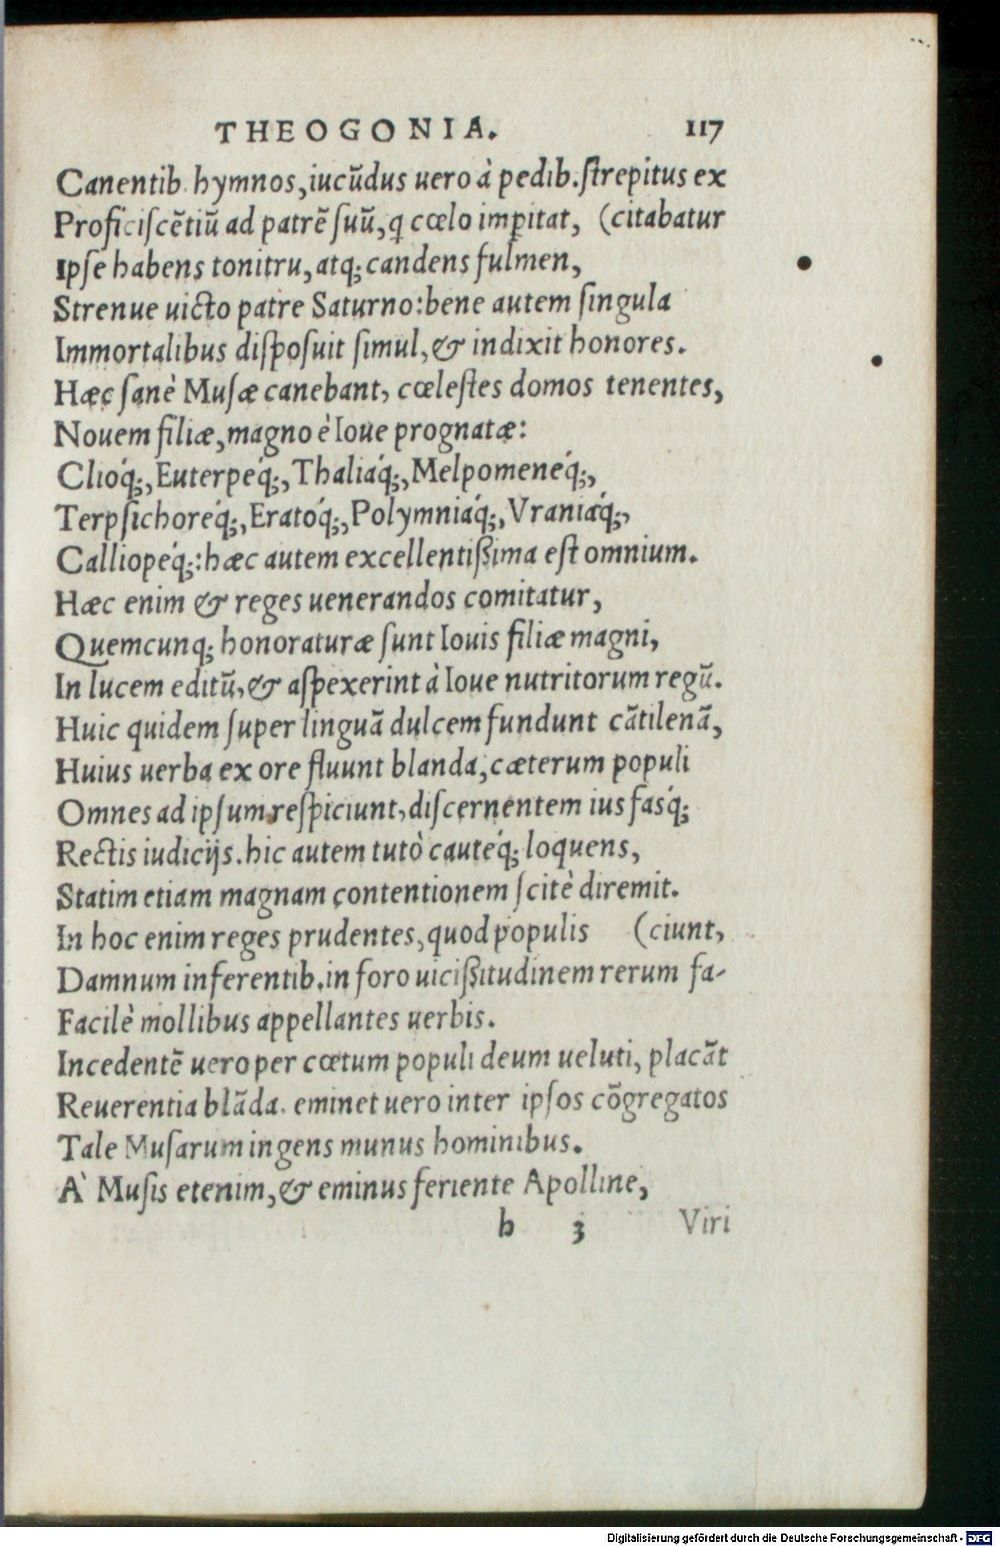 THEOGONIA. 117
Canentib. hymnos, iucūdus uero à pedib. ſtrepitus ex
Proficiſcētiū ad patrē ſuū, ꝗ cœlo imꝑitat, (citabatur
Ipſe habens tonitru, atq; candens fulmen,
Strenue uicto patre Saturno: bene autem ſingula
Immortalibus diſpoſuit ſimul, & indixit honores.
Hæc ſanè Muſæ canebant, cœleſtes domos tenentes,
Nouem filiæ, magno è Ioue prognatæ:
Clioq́;, Euterpeq́;, Thaliaq́;, Melpomeneq́;,
Terpſichoreq́;, Eratoq́;, Polymniaq́;, Vraniaq́;,
Calliopeq́;: hæc autem excellentißima eſt omnium.
Hæc enim & reges uenerandos comitatur,
Quemcunq; honoraturæ ſunt Iouis filiæ magni,
In lucem editū, & aſpexerint à Ioue nutritorum regū.
Huic quidem ſuper linguā dulcem fundunt cātilenā,
Huius uerba ex ore fluunt blanda, cæterum populi
Omnes ad ipſum reſpiciunt, diſcernentem ius fasq́;
Rectis iudicijs. hic autem tutò cauteq́; loquens,
Statim etiam magnam contentionem ſcitè diremit.
In hoc enim reges prudentes, quod populis (ciunt,
Damnum inferentib. in foro uicißitudinem rerum fa-
Facilè mollibus appellantes uerbis.
Incedentē uero per cœtum populi deum ueluti, placāt
Reuerentia blāda. eminet uero inter ipſos cōgregatos
Tale Muſarum ingens munus hominibus.
À Muſis etenim, & eminus feriente Apolline,
b 3 Viri
Digitalisierung gefördert durch die Deutsche Forschungsgemeinschaft - DFG